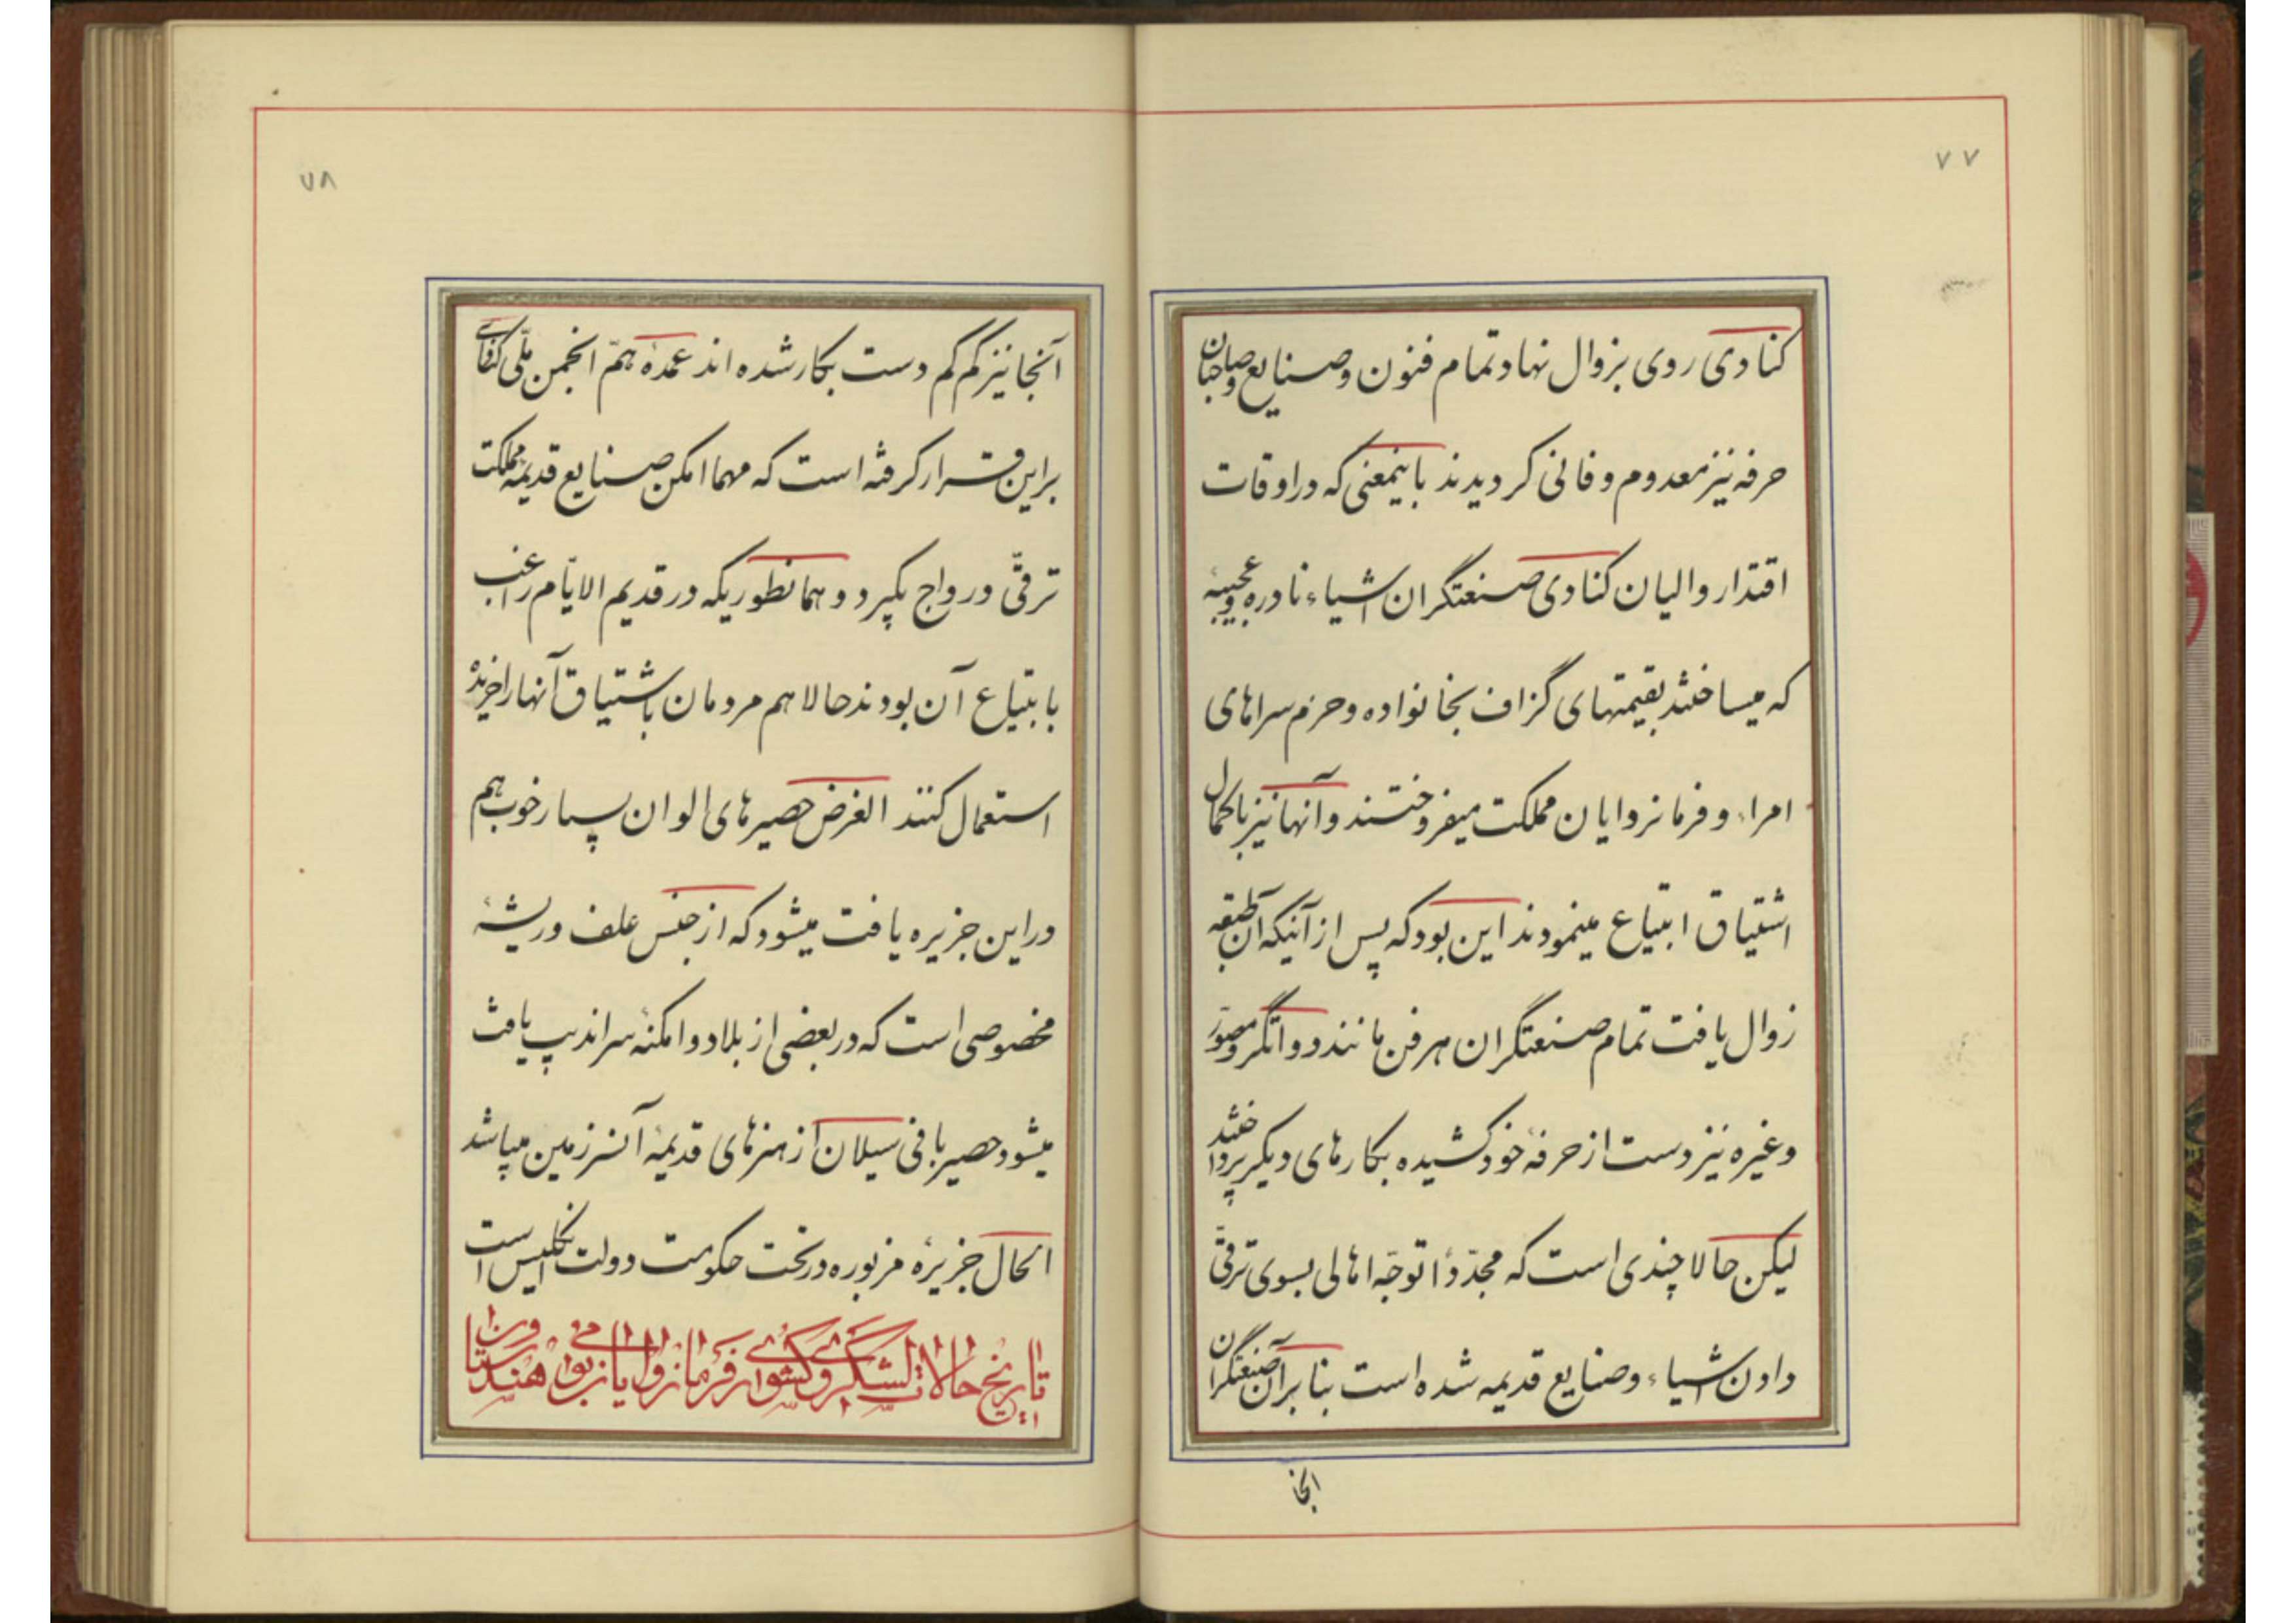 ۷۷
کنادی روی بزوال نهاد تمام فنون و صنایع و صاحبان
حرفه نیز معدوم و فانی کردیدند باینمعنی که در اوقات
اقتدار والیان کنادی صنعتگران اشیاء نادره و عجیبهٔ
که میساختند بقیمتهای گزاف بخانواده و حرم سراهای
امراء و فرمانروایان مملکت میفروختند و آنها نیز با کمال
اشتیاق ابتیاع مینمودند این بود که پس از آنیکه آن طبقه
زوال یافت تمام صنعتگران هر فن مانند دواتگر و مصوّر
و غیره نیز دست از حرفهٔ خود کشیده بکارهای دیکر پرداختند
لیکن حالا چندی است که مجدّدًا توجّه اهالی بسوی ترقّی
دادن اشیاء و صنایع قدیمه شده است بنا بر آن صنعتگران
آنجا
۷۸
آنجا نیز کم کم دست بکار شده اند عمدهٔ همّ انجمن ملّی
بر این قرار کرفته است که مهما امکن صنایع قدیمهٔ مملکت
ترقّی و رواج بکیرد و همانطوریکه در قدیم الایّام راغب
بابتیاع آن بودند حالا هم مردمان باشتیاق آنها را خریدهٔ
استعمال کنند الغرض حصیرهای الوان بسیار خوب هم
در این جزیره یافت میشود که از جنس علف و ریشهٔ
مخصوصی است که در بعضی از بلاد و امکنهٔ سراندیپ یافت
میشود حصیر بافی سیلان از هنرهای قدیمهٔ آنسرزمین میباشد
الحال جزیرهٔ مزبوره در تحت حکومت دولت انگلیس است
تاریخ حالات لشگری و کشوری از فرمانروایان بومی هندوستان